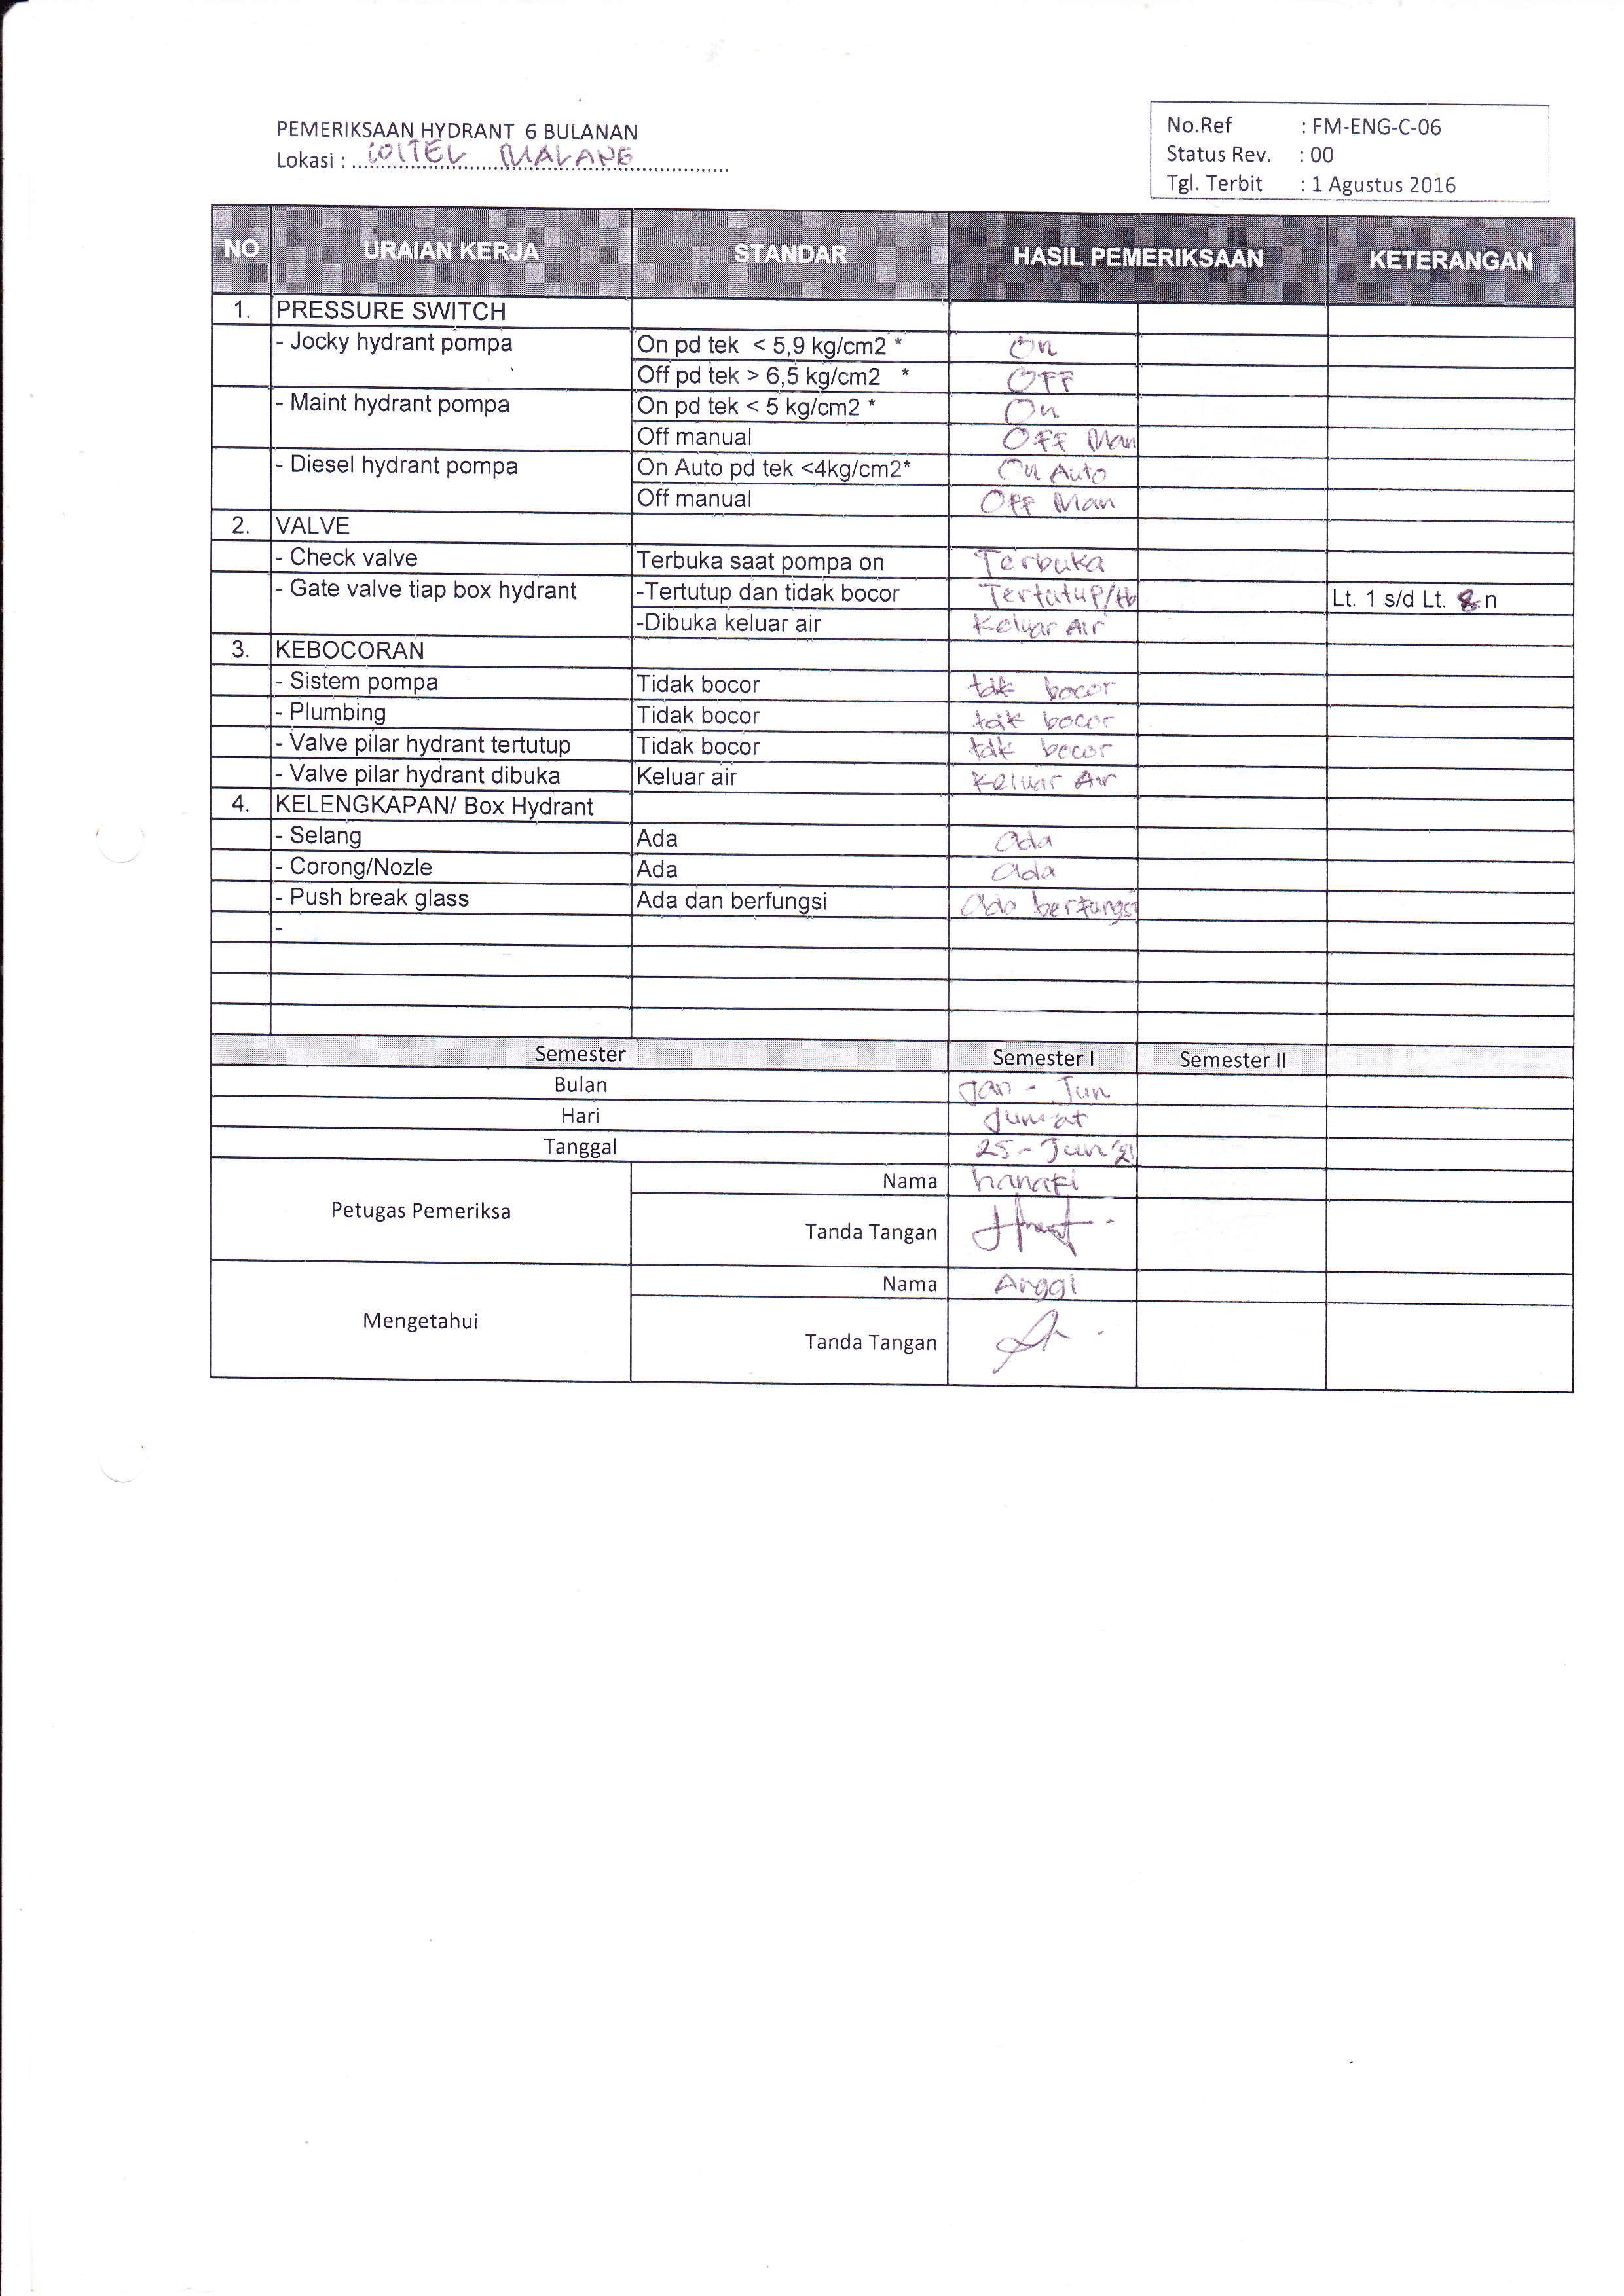 PEMERIKSAAN HYDRANT 6 BULANAN
Lokasi : WITEL MALANG
No.Ref : FM-ENG-C-06
Status Rev. : 00
Tgl. Terbit : 1 Agustus 2016
NO URAIAN KERJA STANDAR HASIL PEMERIKSAAN KETERANGAN
1. PRESSURE SWITCH
- Jocky hydrant pompa On pd tek < 5,9 kg/cm2 * On
Off pd tek > 6,5 kg/cm2 * OFF
- Maint hydrant pompa On pd tek < 5 kg/cm2 * On
Off manual OFF Man
- Diesel hydrant pompa On Auto pd tek <4kg/cm2* On Auto
Off manual OFF Man
2. VALVE
- Check valve Terbuka saat pompa on Terbuka
- Gate valve tiap box hydrant -Tertutup dan tidak bocor Tertutup/tb Lt. 1 s/d Lt. 8 n
-Dibuka keluar air Keluar Air
3. KEBOCORAN
- Sistem pompa Tidak bocor tdk bocor
- Plumbing Tidak bocor tdk bocor
- Valve pilar hydrant tertutup Tidak bocor tdk bocor
- Valve pilar hydrant dibuka Keluar air Keluar Air
4. KELENGKAPAN/ Box Hydrant
- Selang Ada Ada
- Corong/Nozle Ada Ada
- Push break glass Ada dan berfungsi Ada berfungsi
-
Semester Semester I Semester II
Bulan Jan - Jun
Hari Jumat
Tanggal 25 - Jun '21
Petugas Pemeriksa Nama hanafi
Tanda Tangan
Mengetahui Nama Anggi
Tanda Tangan